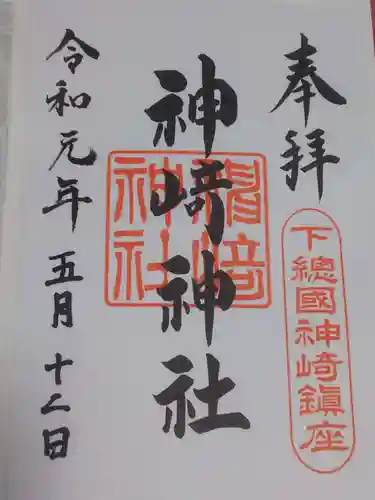 奉拝
下總國神崎鎮座
神崎神社
神崎神社
令和元年五月十八日